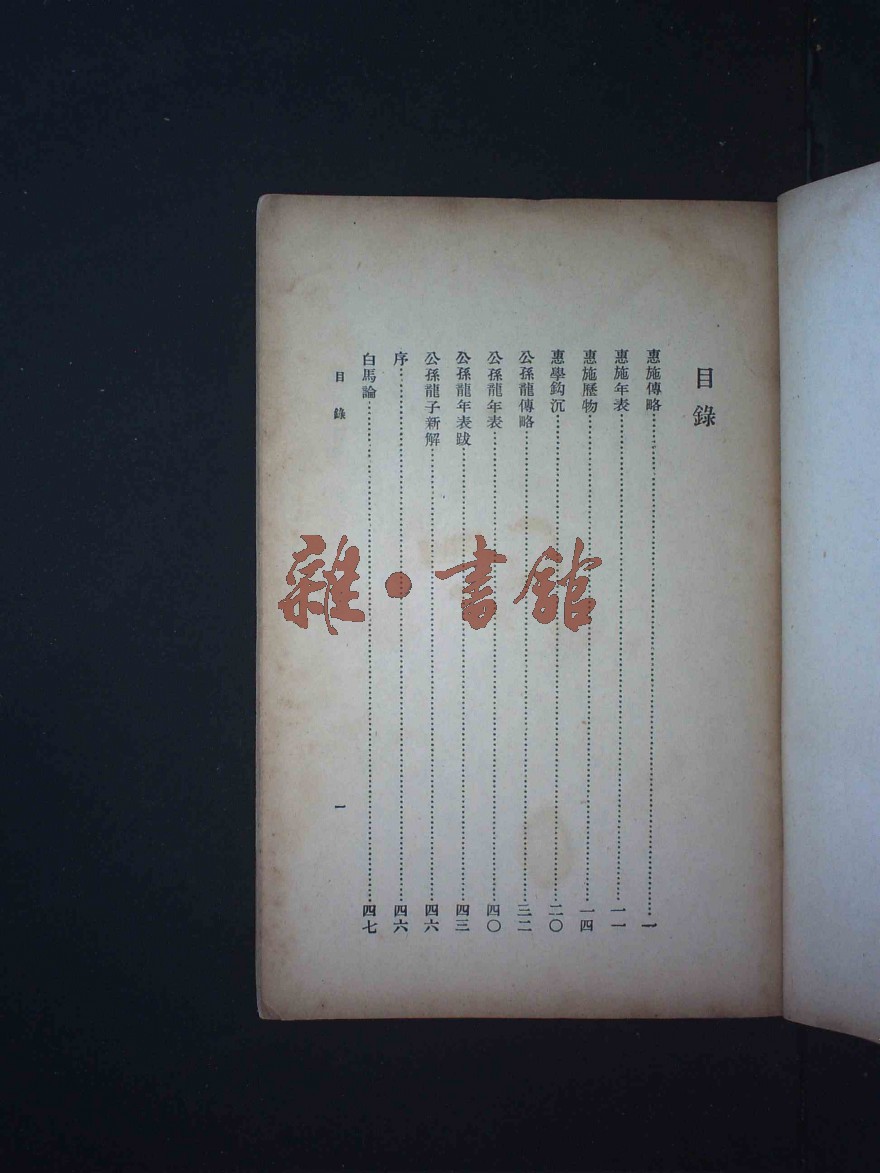 目錄
惠施傳略⋯⋯一
惠施年表⋯⋯一一
惠施歷物⋯⋯一四
惠學鈎沉⋯⋯二〇
公孫龍傳略⋯⋯三二
公孫龍年表⋯⋯四〇
公孫龍年表跋⋯⋯四三
公孫龍子新解⋯⋯四六
序⋯⋯四六
白馬論⋯⋯四七
目錄 一
雜·書館